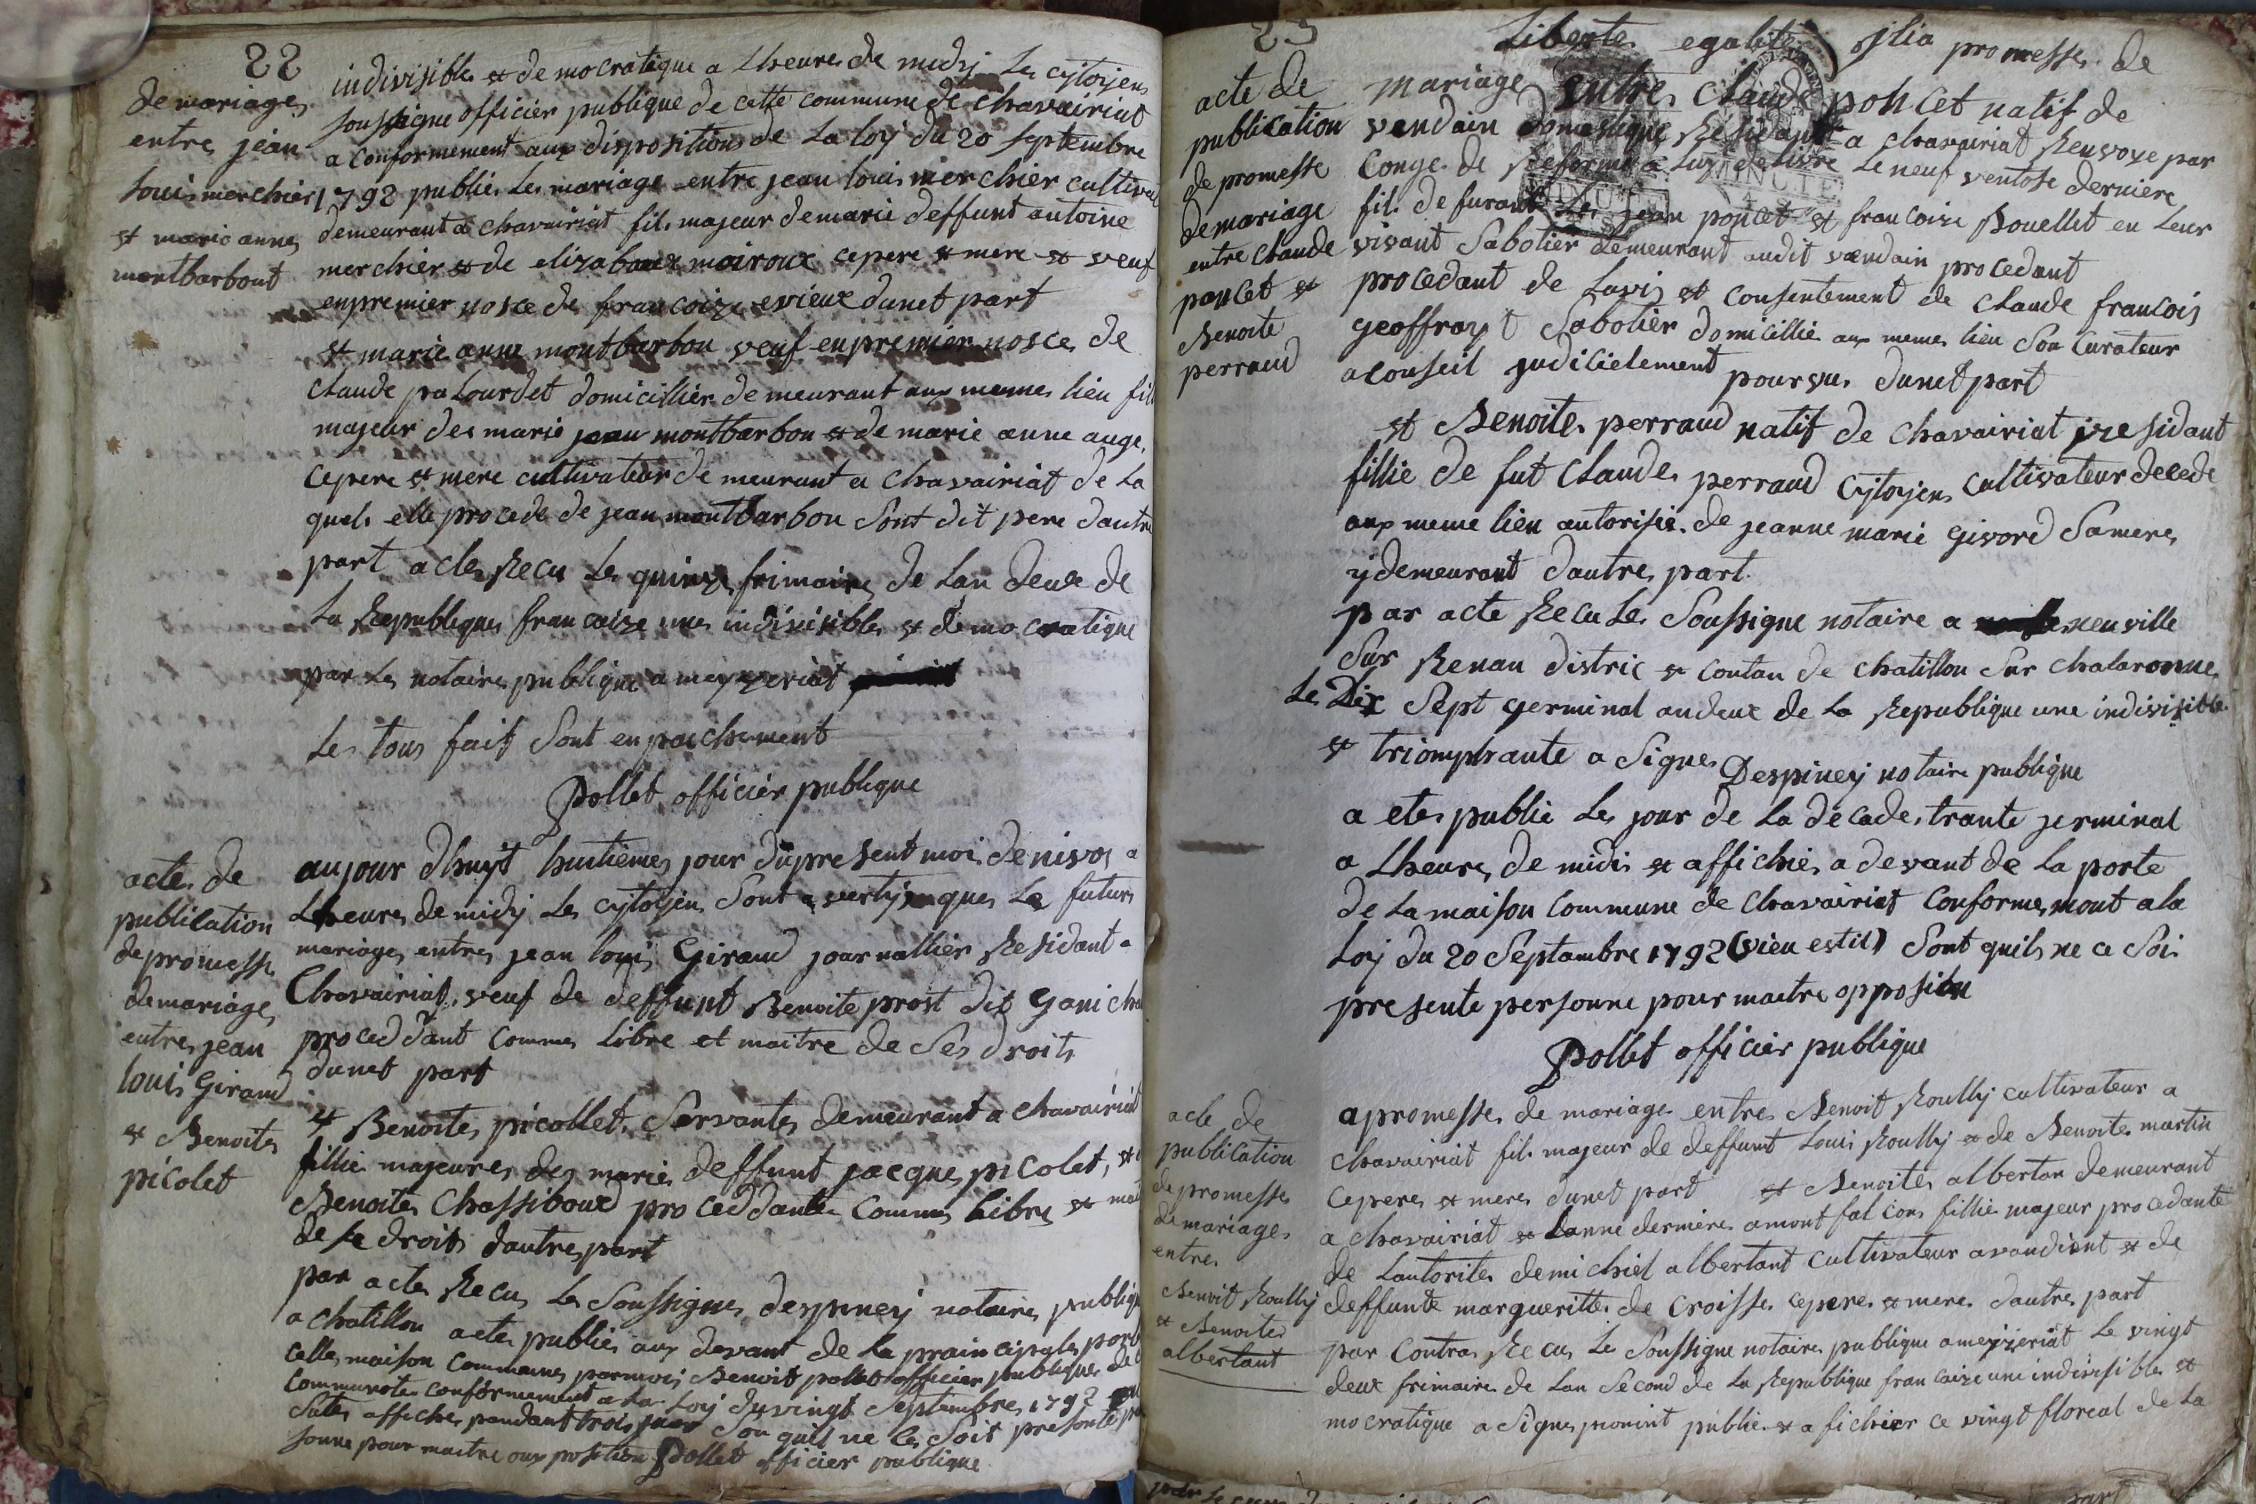 22
de mariage
entre jean
Louis merchier
et marie anne
montbarbout
indivisible et democratique a Lheure de midy Les cytoyens
soussigne officier publique de cette commune de chavairiat
a conformement aux dispositions de La loy du 20 septembre
1792 publie Le mariage entre jean louis merchier cultiva
demeurant a chavairiat fils majeur de marie deffunt antoine
merchier et de elizabaux moiroux ce pere et mere et veuf
en premier nosce de francoize evieux dunet part
et marie anne montbarbon veuf en premier nosce de
claude palourdet domicillier demeurant aux meme lieu fill
majeur des marie jean montbarbon et de marie anne auge
ce pere et mere cultivateur demeurant a chavairiat de La
quel elle procede de jean montbarbon Sont dit pere dautre
part acte Recu Le quinze frimaire de Lan deux de
La Republique francaize une indivisible et democratique
par Le notaire publique a meyzeriat
Le tous fait Sont enpaichement
Pollet officier publique
acte de
publication
de promesse
de mariage
entre jean
louis Giraud
et Benoite
picolet
aujour dhuyt huitieme jour du present moi de nivos a
Lheure de midy Le cytoyen Sont avertys que Le futur
mariage entre jean louis Giraud journallier Residant a
Chavairiat veuf de deffunt Benoite prost dit Ganicha
proceddant comme Libre et maitre de Ses droits
dunet part
et Benoite picollet Servante demeurant a chavairiat
fillie majeure des marie deffunt jacque picolet, et
Benoite Chassiboud proceddante comme Libre et mai
de Se droits dautre part
par acte Recu Le Soussigne despiney notaire publiq
a chatillon acte publie aux devant de La principale port
celle maison commune parmoi Benoit pollet officier publique de c
communote conformement a La Loy du vingt Septembre 1792
Sute affiche pendant trois jour Son quil ne Ce Soit presonte per
sonne pour maitre oupposition Pollet officier publique
23
acte de
publication
de promesse
de mariage
entre claude
poncet et
Benoite
perraud
Liberte egalite jlia promesse de
mariage entre claude poncet natif de
vandain domestique Residant a chavairiat Renvoye par
Conge de Reforme a Luy delivre Le neuf ventose derniere
fil de furant Le jean poncet et francoise Bouellet en Leur
vivant Sabotier demeurant audit vandain procedant
procedant de Lavis et consentement de claude francois
geoffray Sabotier domicillie aux meme lieu Son curateur
aconseil judicielement pourvu dunet part
et Benoite perraud natif de chavairiat y residant
fillie de fut claude perraud cytoyen cultivateur decede
aux meme lieu autorisie de jeanne marie givord Samere
y demeurant dautre part.
par acte Recu Le Soussigne notaire a neuville
Sur Renau distric et contan de chatillon Sur chalaronne
Le Dix Sept germinal andeux de La Republique une indivisible
et triomphante a Signe Despiney notaire publique
a ete publie Le jour de La decade trante jerminal
a Lheure de midi et affichie a devant de La porte
de La maison commune de chavairiat conformemont ala
Loy du 20 Septambre 1792 (vieu estil) Sont quils ne ce Soi
presente personne pour maitre opposition
Pollet officier publique
acte de
publication
de promesse
de mariage
entre
Benoit Roully
et Benoite
albertant
apromesse de mariage entre Benoit Roully cultivateur a
chavairiat fil majeur de deffunt Louis Roully et de Benoite martin
ce pere et mere dunet part et Benoite albertan demeurant
a chavairiat et Lanne derniere amont falcon fillie majeur procedante
de Lautorite demichiel albertant cultivateur avandient et de
deffunte margueritte de Croisse ce pere et mere dautre part
par contra Recu Le Soussigne notaire publique ameyzeriat Le vingt
deux frimaire de Lan Second de La Republique francaize une indivisible et
mocratique a Signe monint publie et afichier ce vingt floreal de La